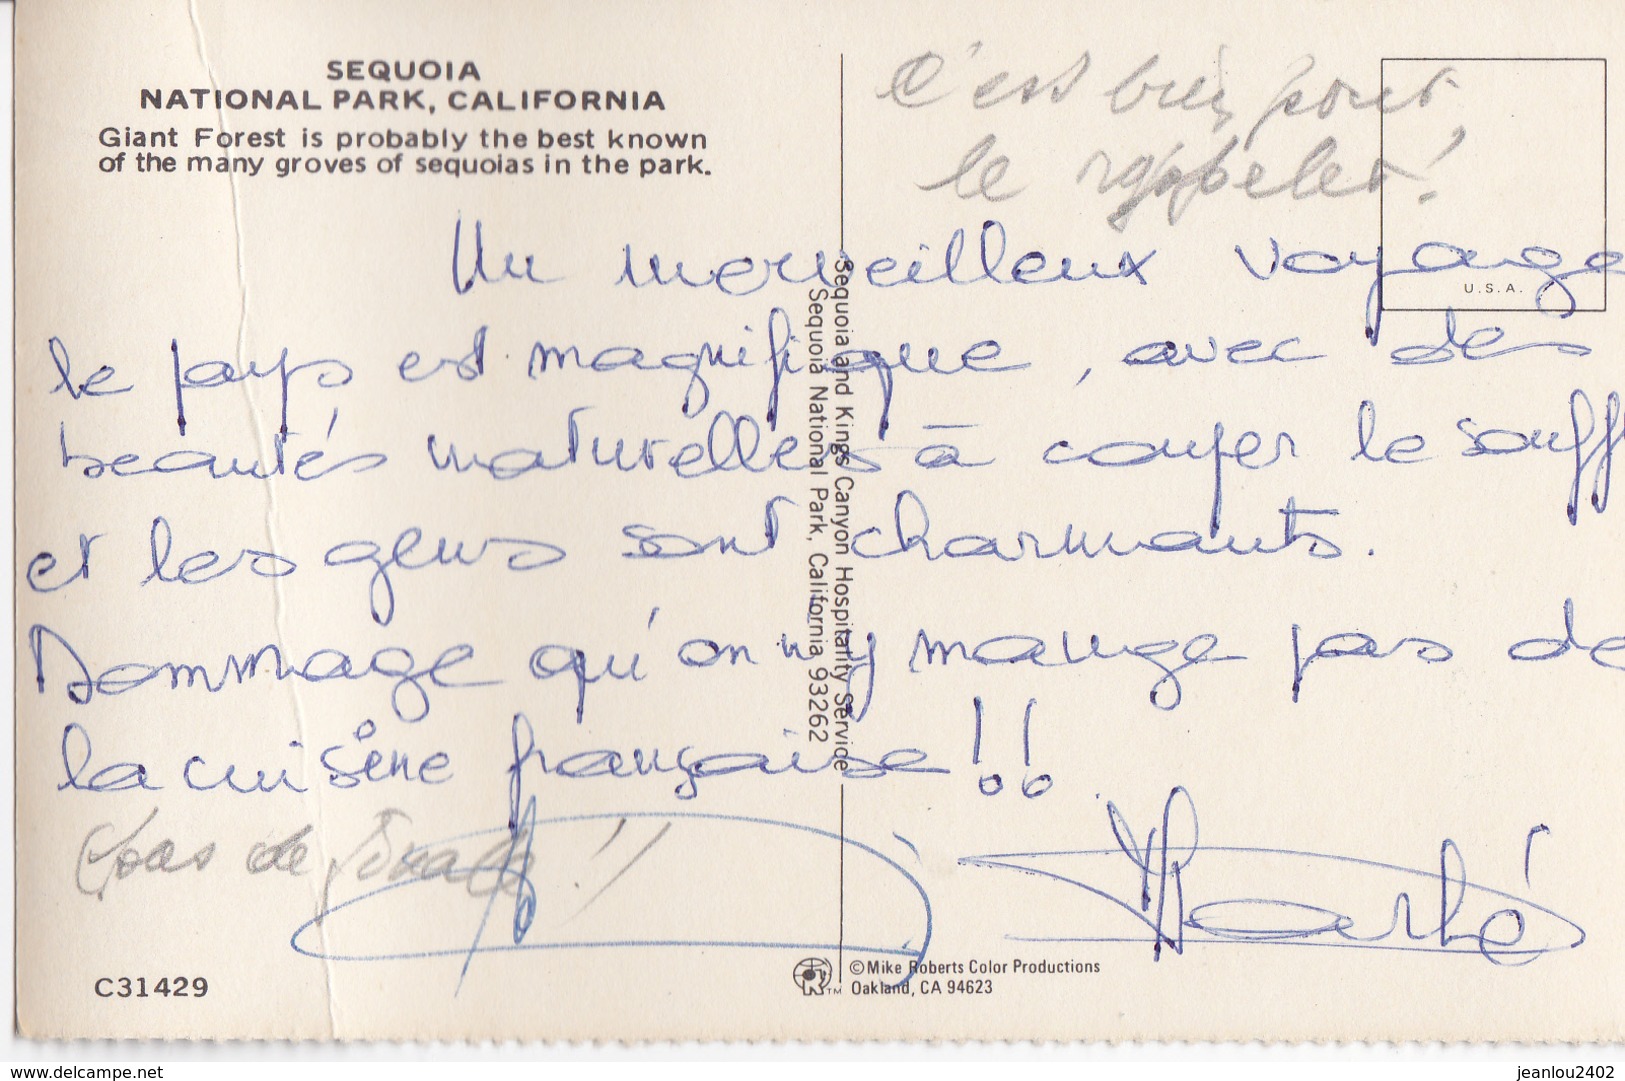 SEQUOIA
NATIONAL PARK, CALIFORNIA
Giant Forest is probably the best known
of the many groves of sequoias in the park.
C'est bien pour
le rappeler!
U.S.A.
Un merveilleux voyage
le pays est magnifique, avec des
beautés naturelles à couper le souffl
et les gens sont charmants.
Dommage qu'on n'y mange pas de
la cuisine française !!
pas de !!
Sequoia and Kings Canyon Hospitality Service
Sequoia National Park, California 93262
C31429
©Mike Roberts Color Productions
Oakland, CA 94623
TM
delcampe.net
jeanlou2402